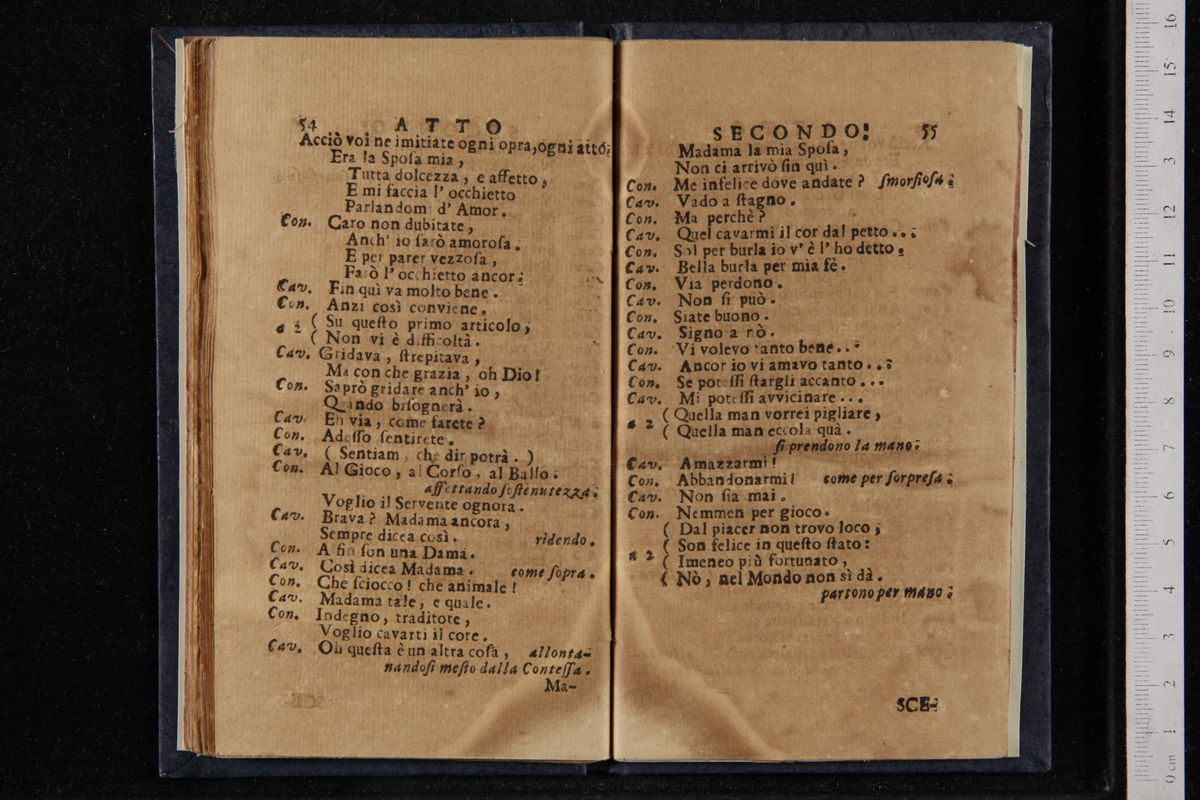 54 ATTO
Acciò voi ne imitiate ogni opra, ogni atto;
Era la Spoſa mia,
Tutta dolcezza, e affetto,
E mi faccia l' occhietto
Parlandomi d' Amor.
Con. Caro non dubitate,
Anch' io ſarò amoroſa.
E per parer vezzoſa,
Farò l' occhietto ancor.
Cav. Fin quì va molto bene.
Con. Anzi così conviene.
a 2 ( Su queſto primo articolo,
( Non vi è difficoltà.
Cav. Gridava, ſtrepitava,
Ma con che grazia, oh Dio!
Con. Saprò gridare anch' io,
Quando biſognerà.
Cav. Eh via, come farete?
Con. Adeſſo ſentirete.
Cav. ( Sentiam, che dir potrà. )
Con. Al Gioco, al Corſo, al Ballo.
affettando ſoſtenutezza.
Voglio il Servente ognora.
Cav. Brava? Madama ancora,
Sempre dicea così. ridendo.
Con. Al fin ſon una Dama.
Cav. Così dicea Madama. come ſopra.
Con. Che ſciocco! che animale!
Cav. Madama tale, e quale.
Con. Indegno, traditore,
Voglio cavarti il core.
Cav. Oh queſta è un altra coſa, allonta-
nandoſi meſto dalla Conteſſa.
Ma-
SECONDO. 55
Madama la mia Spoſa,
Non ci arrivò ſin quì.
Con. Me infelice dove andate? ſmorfioſa.
Cav. Vado a ſtagno.
Con. Ma perchè?
Cav. Quel cavarmi il cor dal petto...
Con. Sol per burla io v' è l' ho detto.
Cav. Bella burla per mia fè.
Con. Via perdono.
Cav. Non ſi può.
Con. Siate buono.
Cav. Signora nò.
Con. Vi volevo tanto bene...
Cav. Ancor io vi amavo tanto...
Con. Se poteſſi ſtargli accanto...
Cav. Mi poteſſi avvicinare...
a 2 ( Quella man vorrei pigliare,
( Quella man eccola quà.
ſi prendono la mano.
Cav. Amazzarmi!
Con. Abbandonarmi! come per ſorpreſa.
Cav. Non ſia mai.
Con. Nemmen per gioco.
( Dal piacer non trovo loco,
( Son felice in queſto ſtato:
a 2 ( Imeneo più fortunato,
( Nò, nel Mondo non sì dà.
partono per mano.
SCE-
16
15
14
3
12
11
10
9
8
7
6
5
4
3
2
1
0 cm